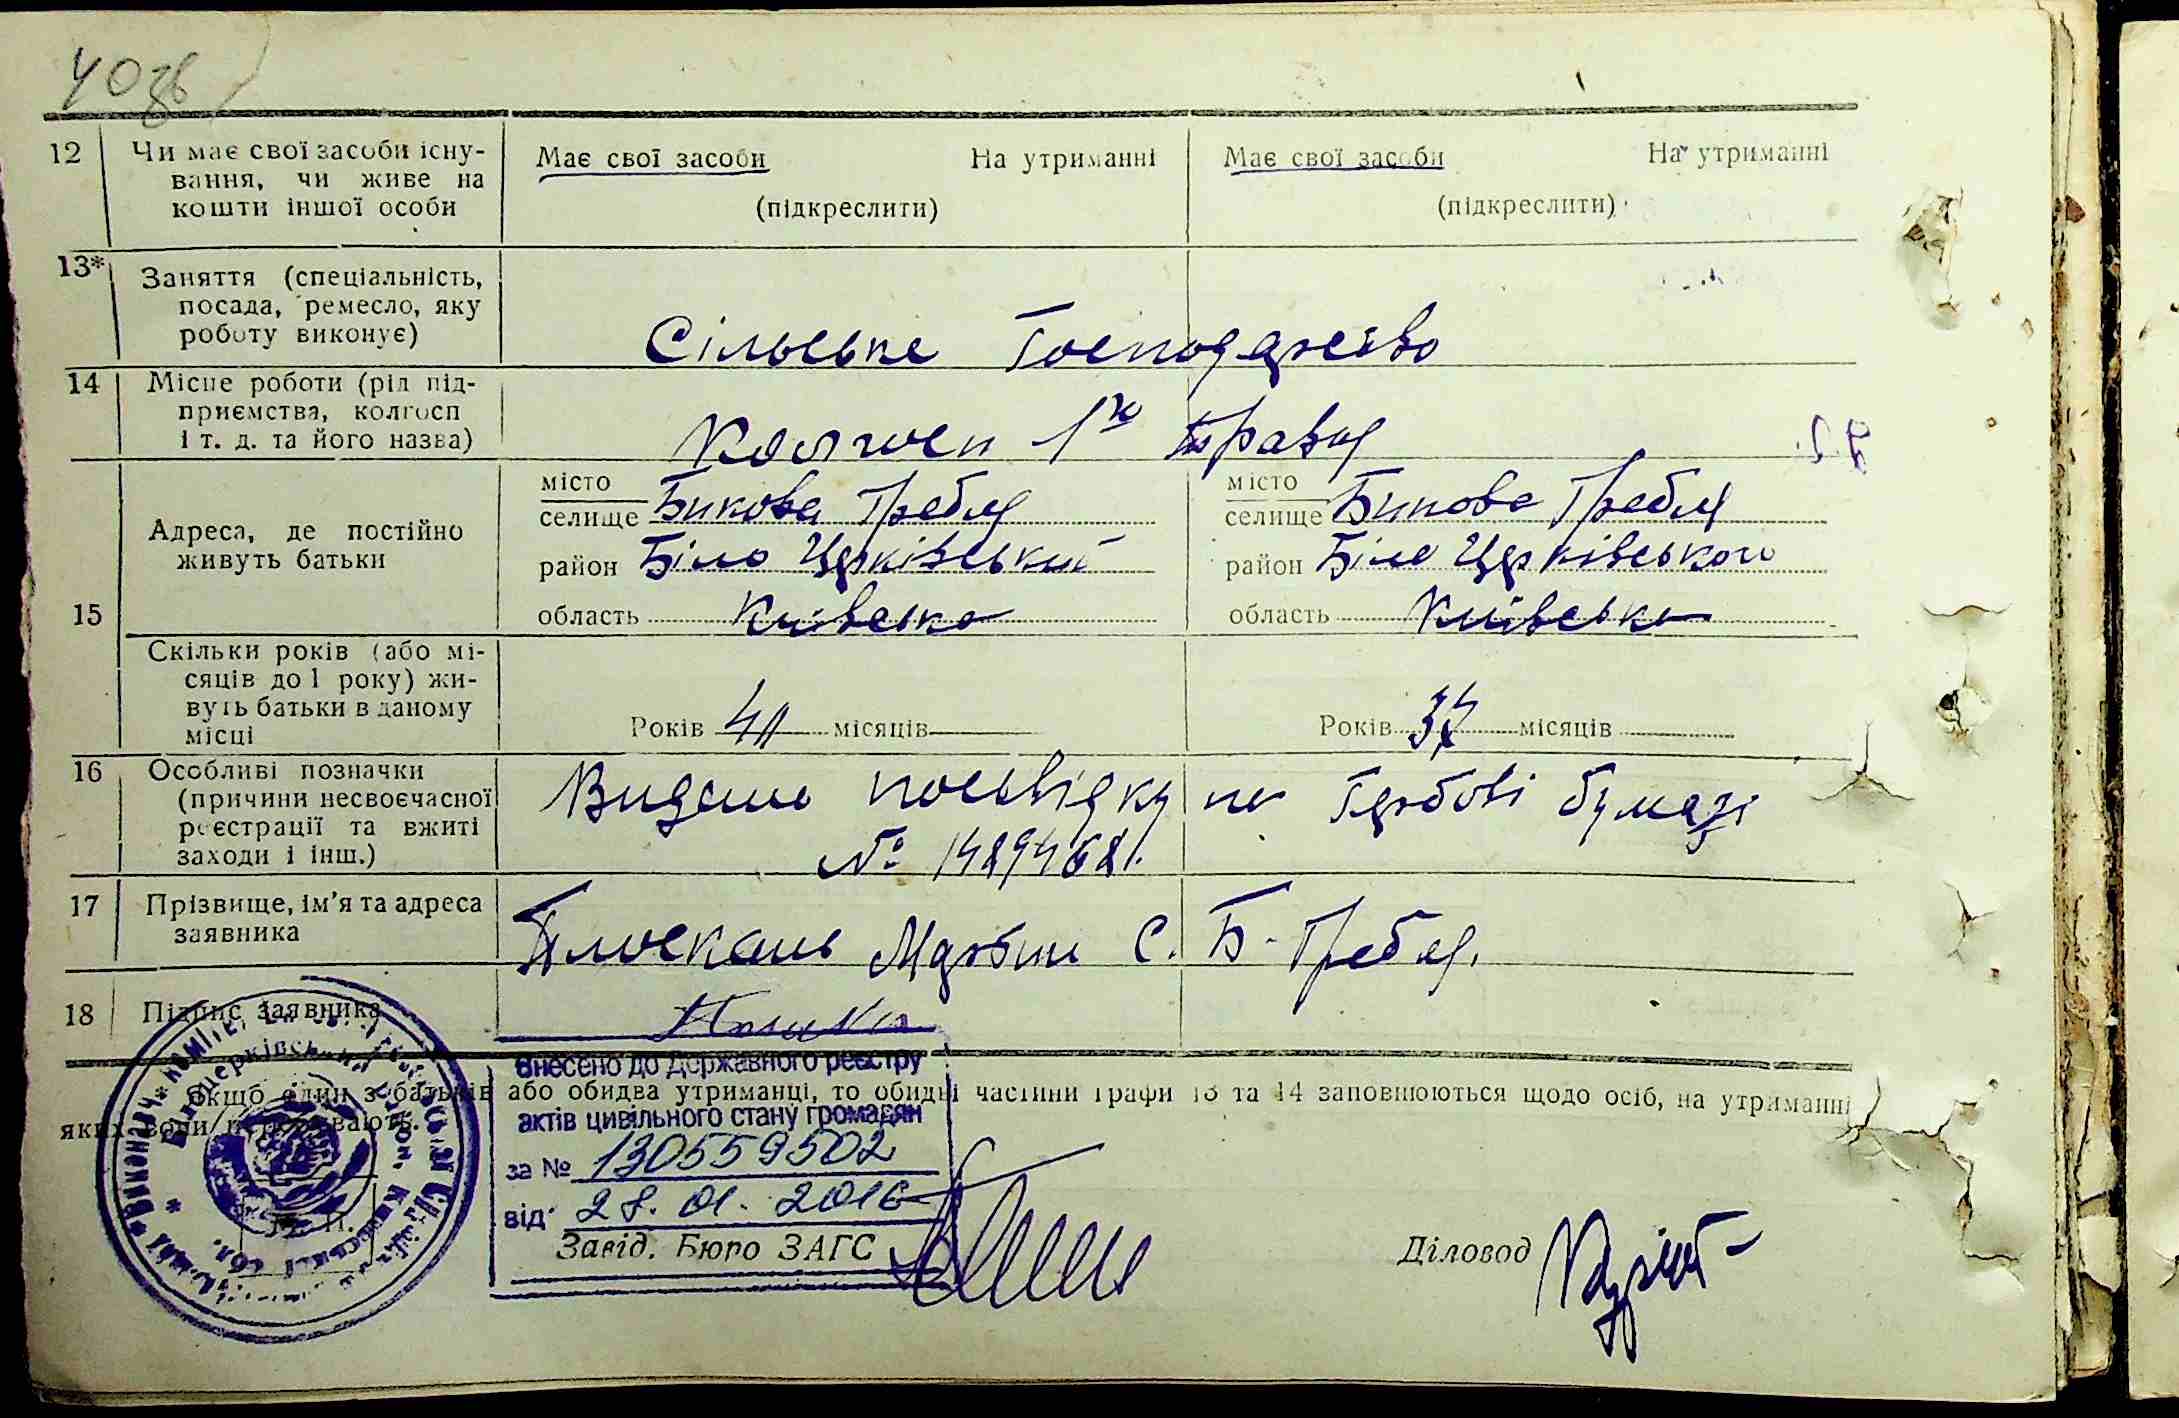 12 Чи має свої засоби існу-
вання, чи живе на
кошти іншої особи
Має свої засоби На утриманні
(підкреслити)
Має свої засоби На утриманні
(підкреслити)
13* Заняття (спеціальність,
посада, ремесло, яку
роботу виконує)
Сільське Господарство
14 Місце роботи (рід під-
приємства, колгосп
і т. д. та його назва)
Колгосп 1го Травня
15 Адреса, де постійно
живуть батьки
місто
селище Бикова Гребля
район Біло Церківський
область Київська
місто
селище Бикова Гребля
район Біло Церківського
область Київська
Скільки років (або мі-
сяців до 1 року) жи-
вуть батьки в даному
місці
Років місяців
Років 37 місяців
16 Особливі позначки
(причини несвоєчасної
реєстрації та вжиті
заходи і інш.)
Видано посвідку на Гербові бумазі
№ 1489468
17 Прізвище, ім'я та адреса
заявника
С. Б-Гребля.
18 Підпис заявника
Якщо один з батьків або обидва утриманці, то обидві частини графи 13 та 14 заповнюються щодо осіб, на утриманні
яких вони перебувають.
Внесено до Державного реєстру
актів цивільного стану громадян
за № 130559502
від 28.01.2016
Завід. Бюро ЗАГС
Діловод